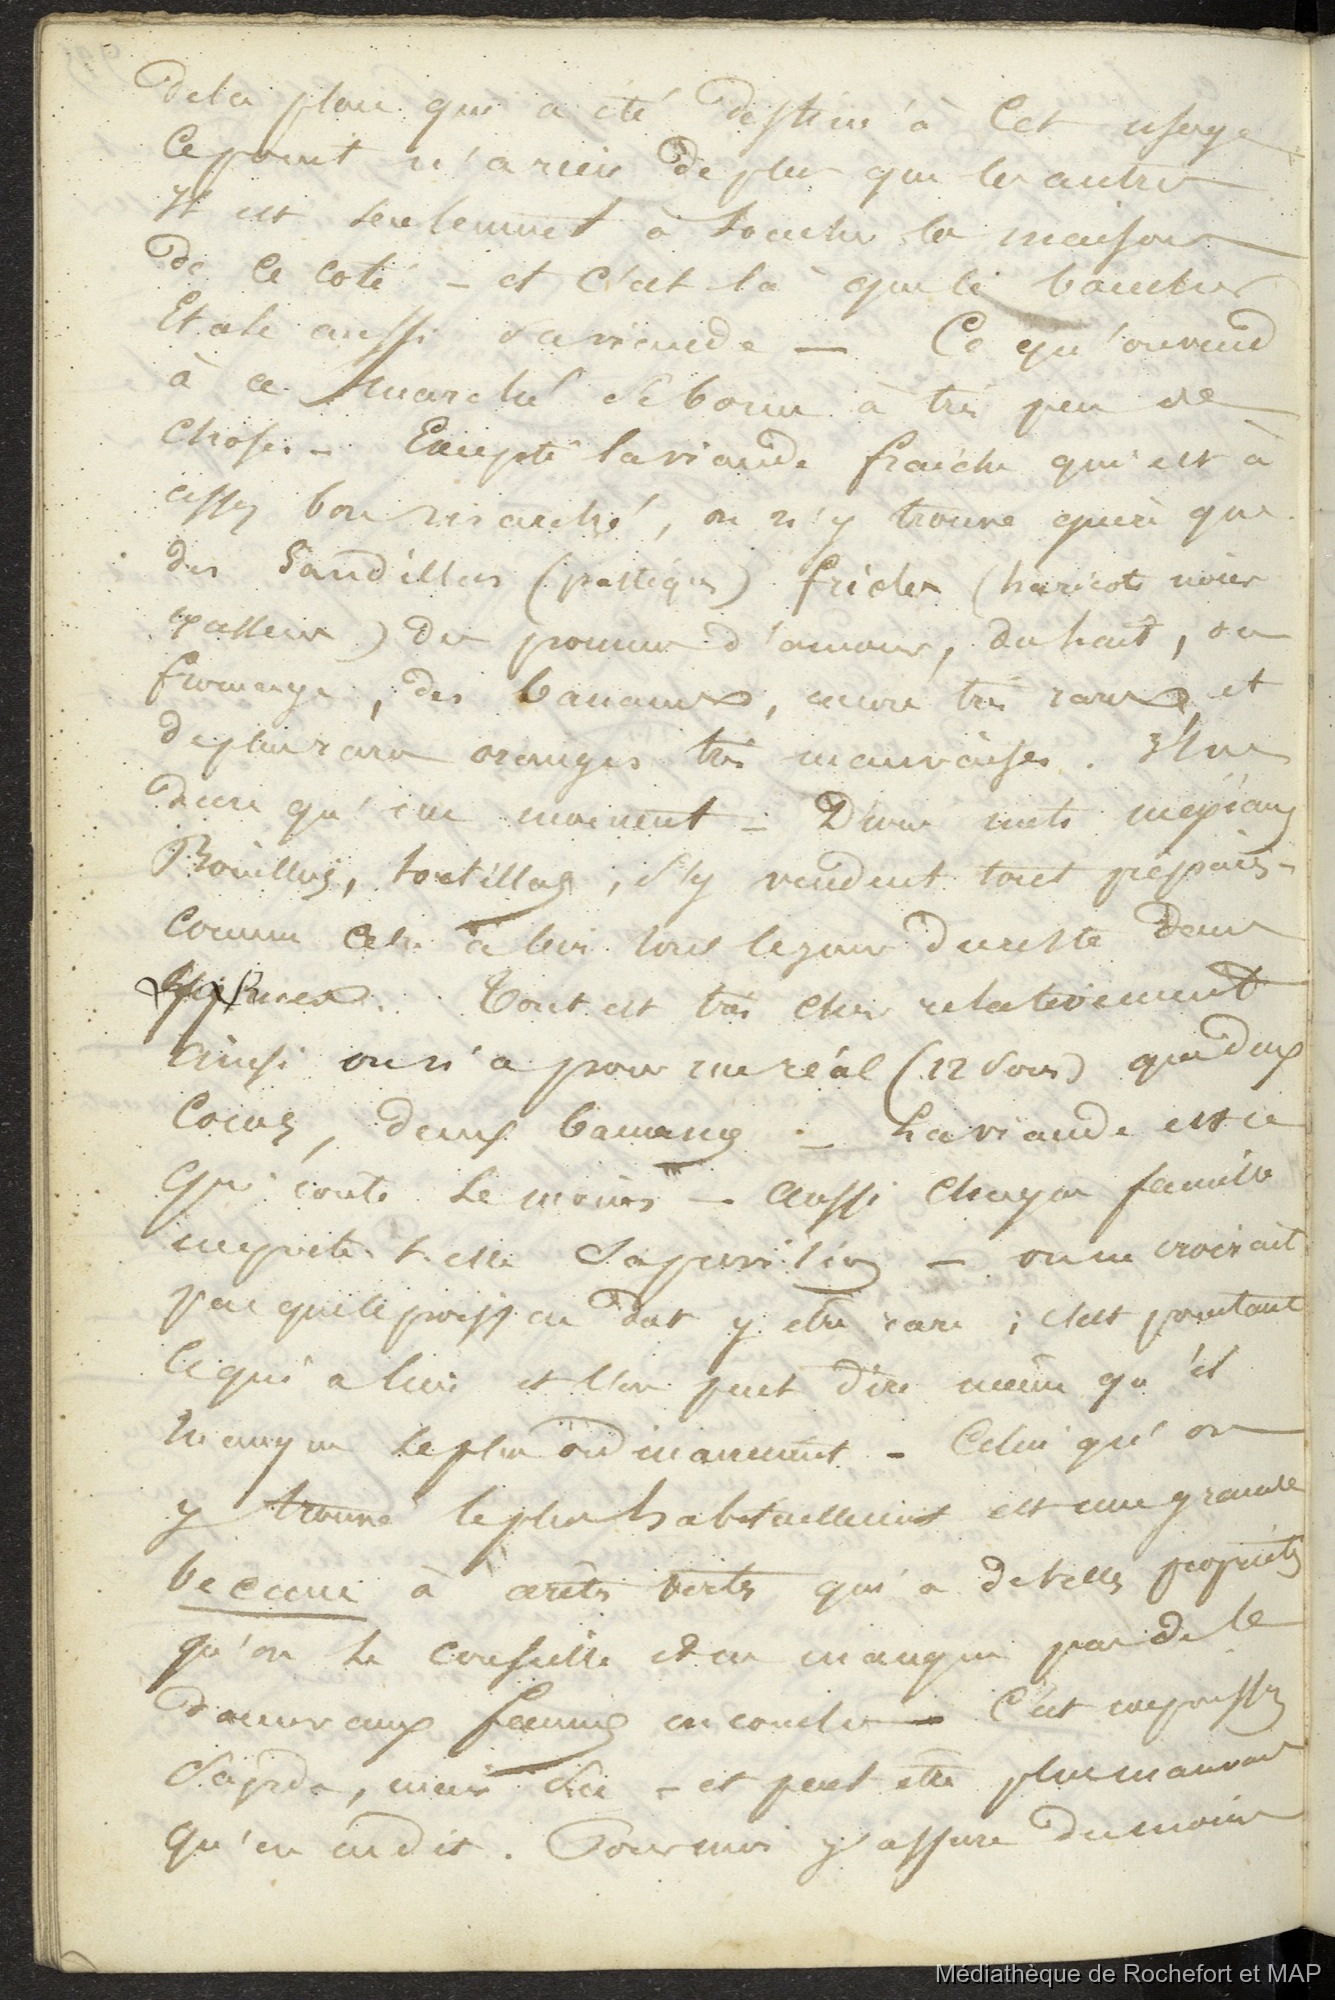 dela place qui a été destiné à cet usage
Ce point n'a rien de plus que les autres
Il est seulement à toucher la maison
de ce coté - et c'est là que le boucher
Etale aussi sa viande — Ce qu'on vend
à ce marché se borne à très peu de
choses - Excepté la viande fraiche qui est à
assez bon marché, on n'y trouve guère que
des Sandillas (pasteques) frioles (haricots noirs
) des pommes d'amour, du lait, du
fromage, des bananes, encore très rares, et
de plus rares oranges très mauvaises. Il ne
dure qu'un moment - Divers mets mexicains
tortillas, s'y vendent tout préparés -
comme cela à lieu tous les jours du reste dans
. Tout est très cher relativement
Ainsi on n'a pour un réal (12 sous) que deux
Cocos, deux bananes - La viande est ce
qui coute le moins - Aussi chaque famille
- on ne croirait
pas que le poisson dut y etre rare ; c'est pourtant
ce qui a lieu et l'on peut dire même qu'il
manque le plus ordinairement - Celui qu'on
y trouve le plus habituellement est une grande
becune à arêtes vertes qui a de telles propriétés
qu'on le conseille et en mangue pas de le
aux femmes en couche - C'est un poisson
, mais sec - et peut etre plus mauvais
qu'on en dit. Pour moi j'assure du moins
Médiathèque de Rochefort et MAP